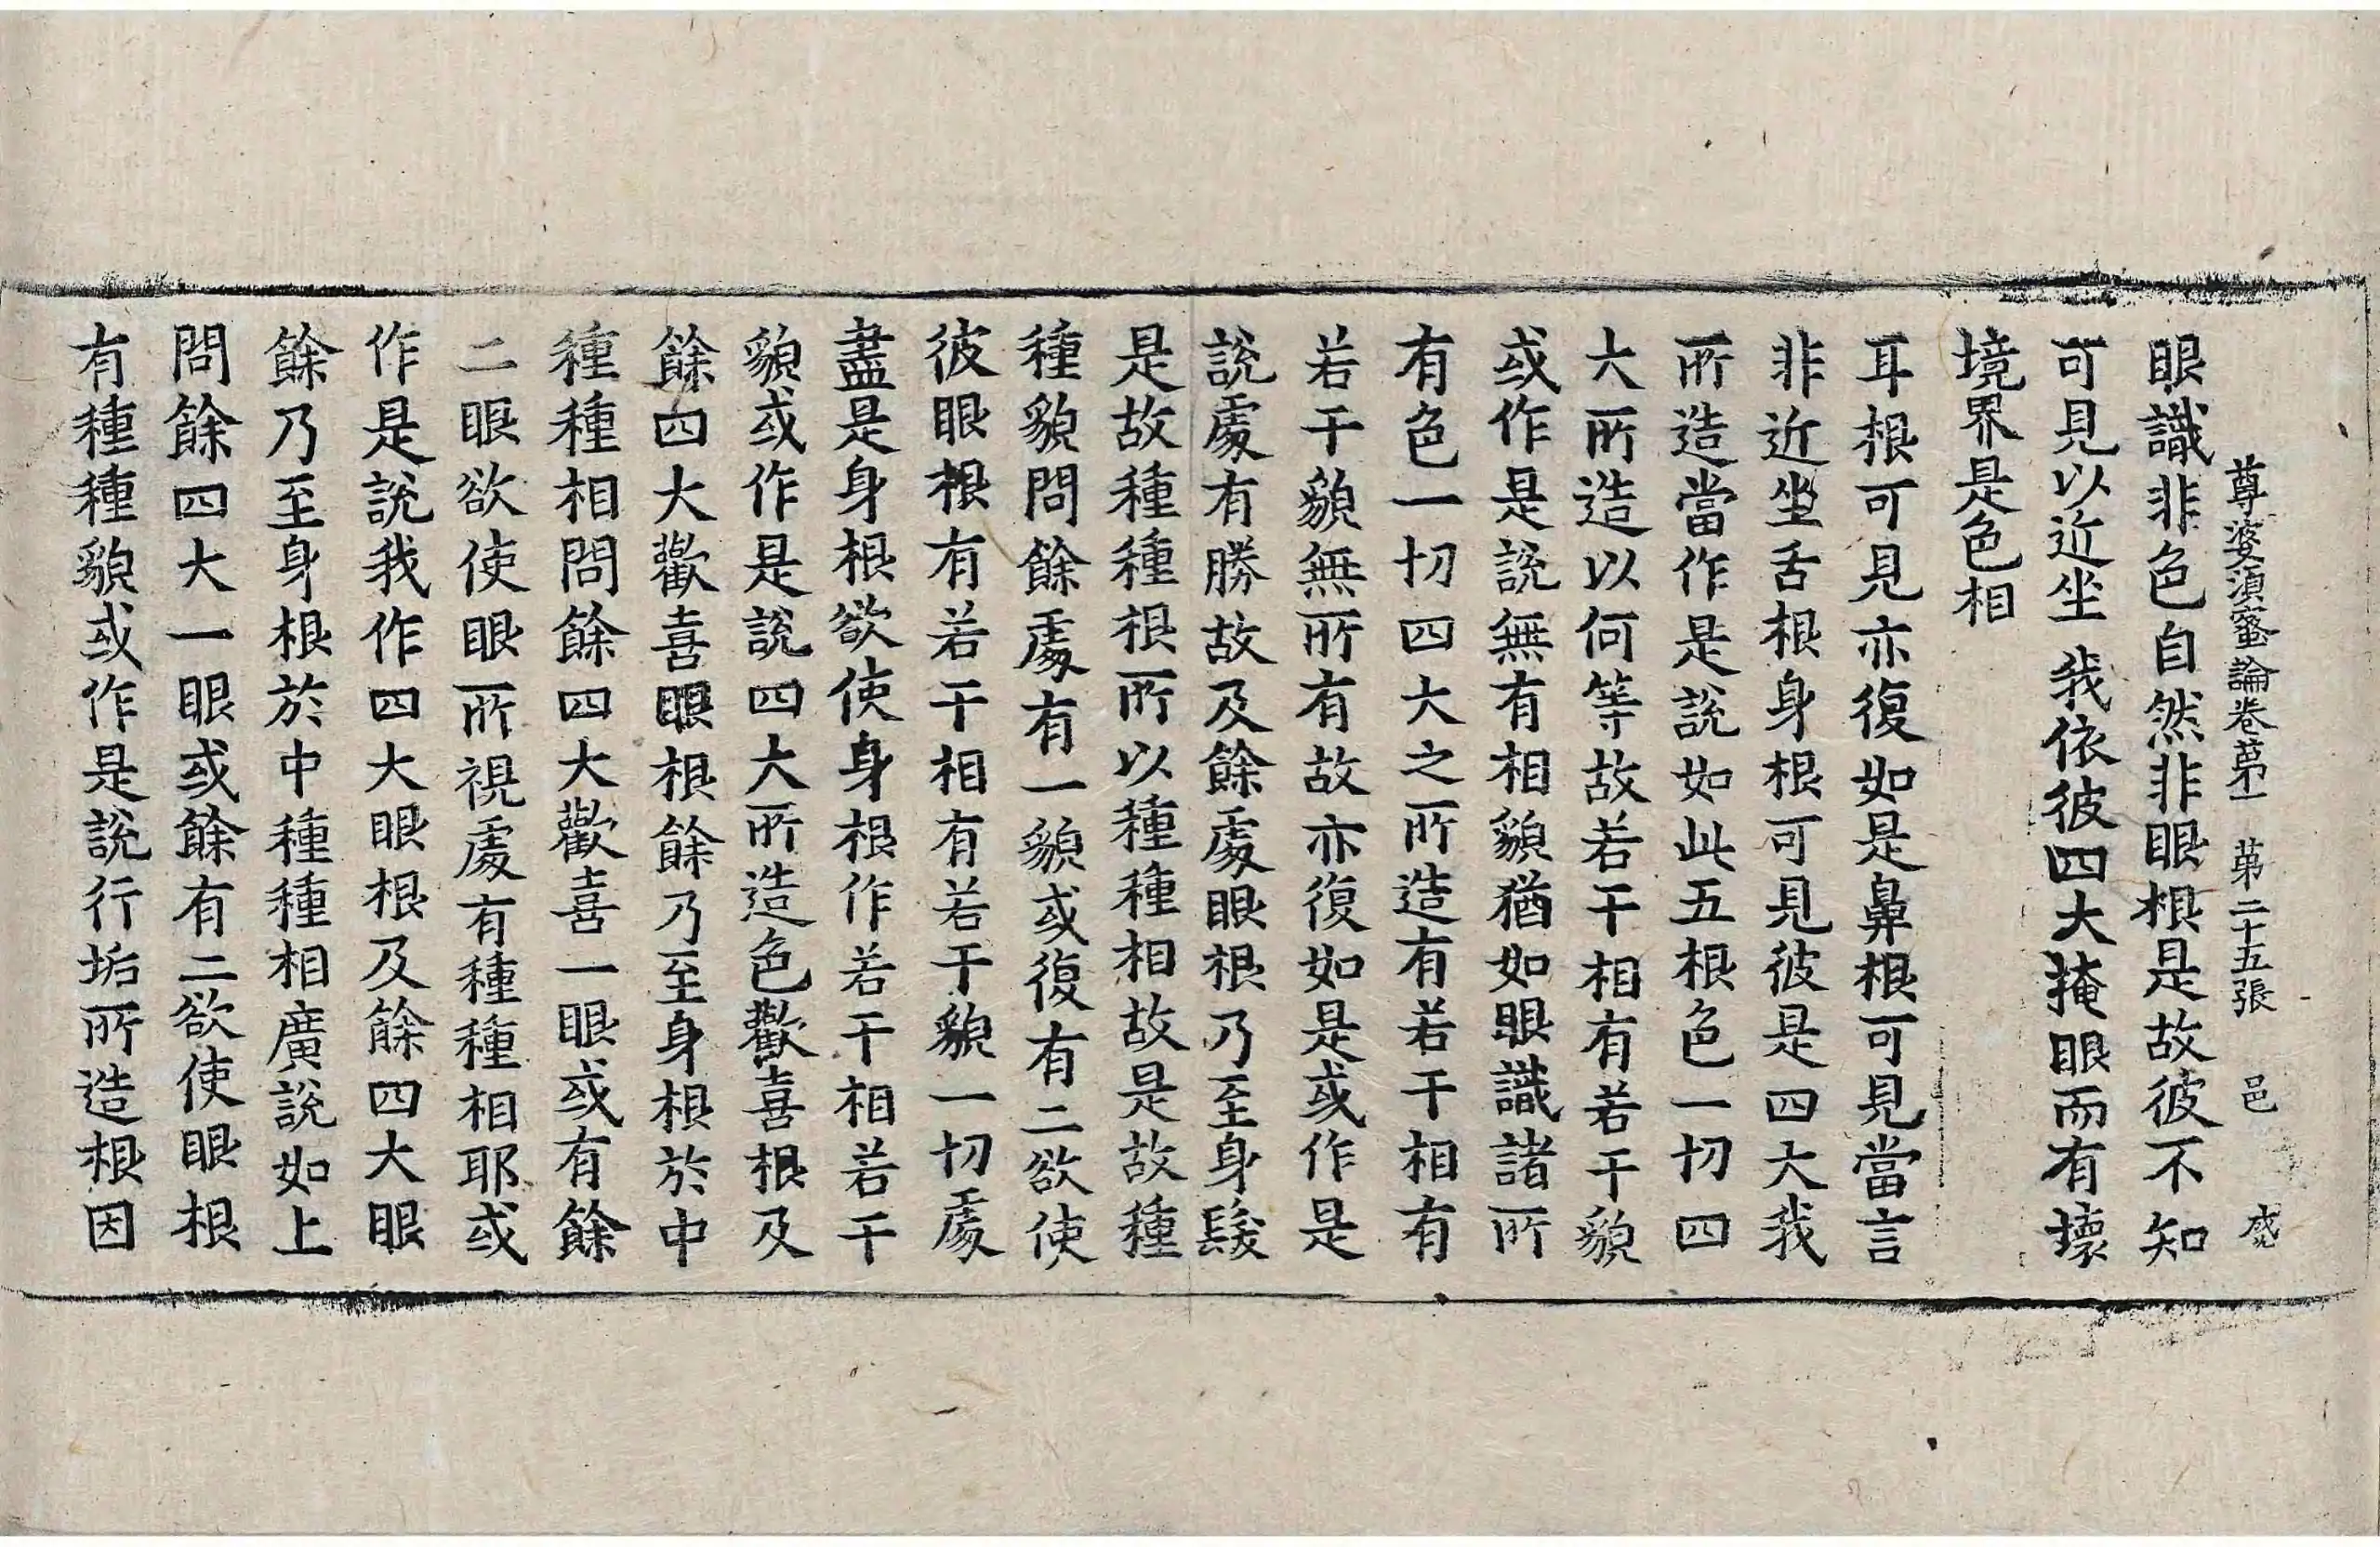 尊婆須蜜論卷第一 第二十五張 邑
眼識非色自然非眼根是故彼不知
可見以近坐 我依彼四大掩眼而有壞
境界是色相
耳根可見亦復如是鼻根可見當言
非近坐舌根身根可見彼是四大我
所造當作是說如此五根色一切四
大所造以何等故若干相有若干貌
或作是說無有相貌猶如眼識諸所
有色一切四大之所造有若干相有
若干貌無所有故亦復如是或作是
說處有勝故及餘處眼根乃至身髮
是故種種根所以種種相故是故種
種貌問餘處有一貌或復有二欲使
彼眼根有若干相有若干貌一切處
盡是身根欲使身根作若干相若干
貌或作是說四大所造色歡喜根及
餘四大歡喜眼根餘乃至身根於中
種種相問餘四大歡喜一眼或有餘
二眼欲使眼所視處有種種相耶或
作是說我作四大眼根及餘四大眼
餘乃至身根於中種種相廣說如上
問餘四大一眼或餘有二欲使眼根
有種種貌或作是說行垢所造根因